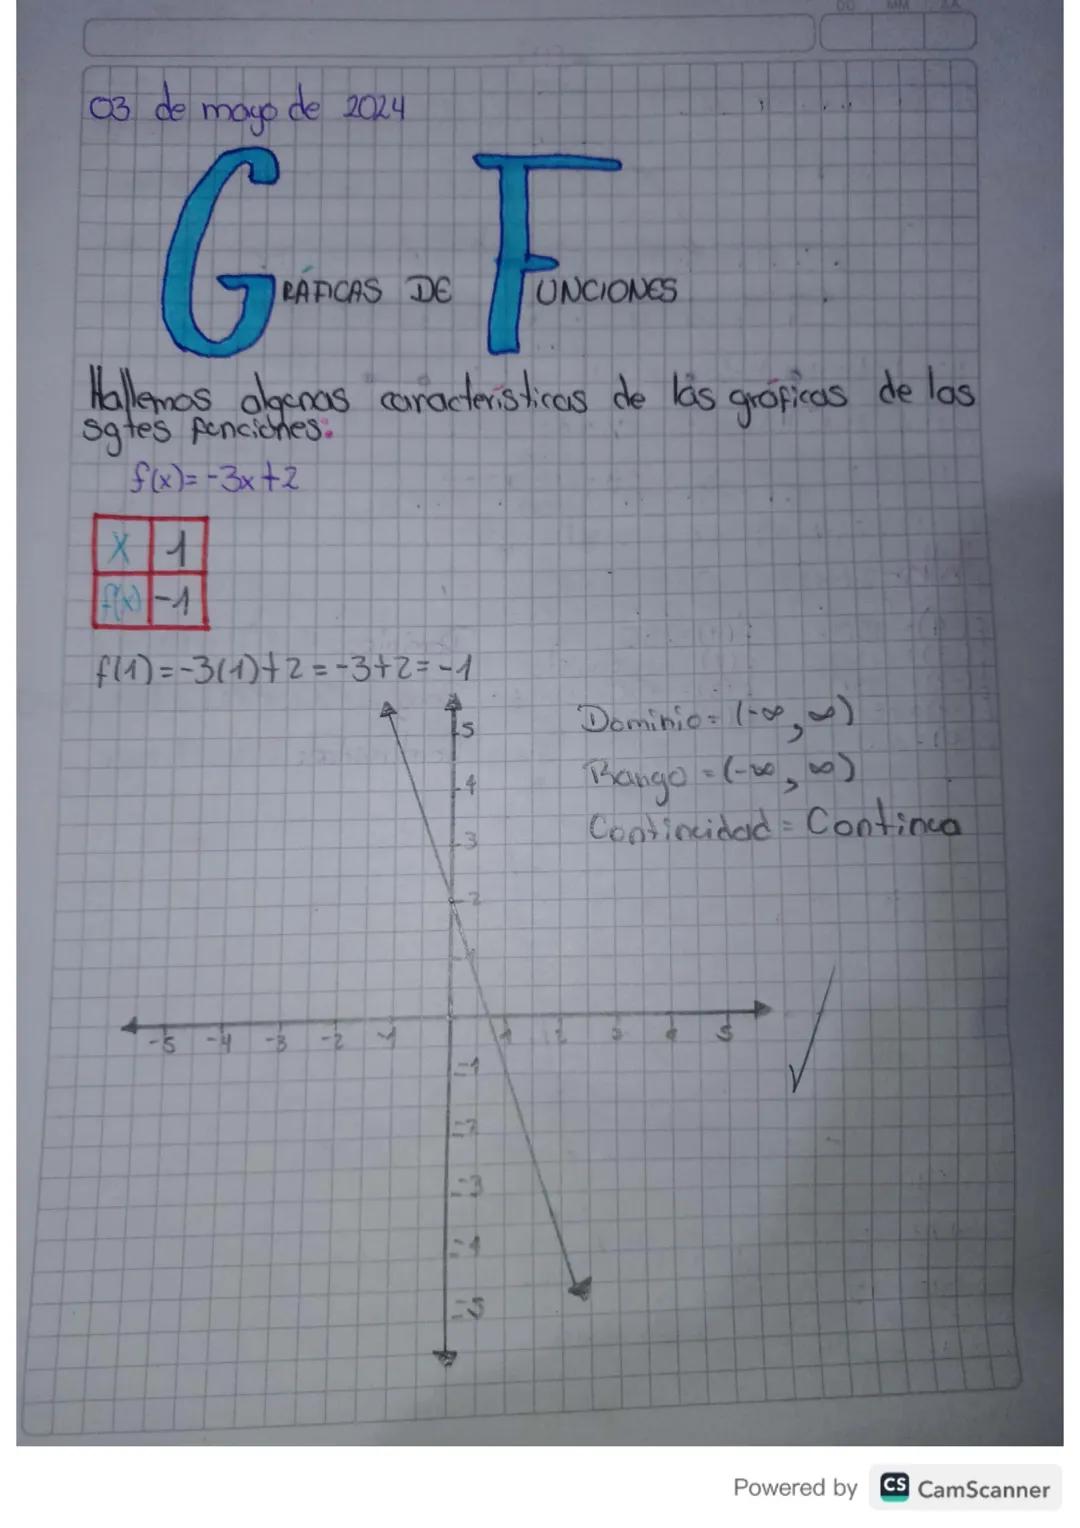 DD MM AA
03 de mayo de 2024
GRÁFICAS DE FUNCIONES
Hallemos algunas características de las gráficas de las
sgtes funciones:
f(x)=-3x+2
X 1
f(x) -1
f(1)=-3(1)+2=-3+2=-1
Dominio=(-∞,∞)
Rango=(-∞,∞)
Continuidad=Continua
5
4
3
2
1
-5 -4 -3 -2 -1 1 2 3 4 5
-1
-2
-3
-4
-5
Powered by CS CamScanner